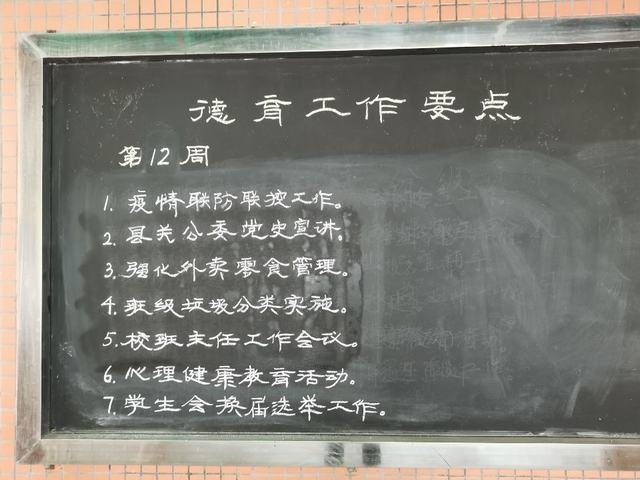 德育工作要点
第12周
1. 疫情联防联控工作。
2. 县关公委党史宣讲。
3. 强化外卖零食管理。
4. 班级垃圾分类实施。
5. 校班主任工作会议。
6. 心理健康教育活动。
7. 学生会换届选举工作。